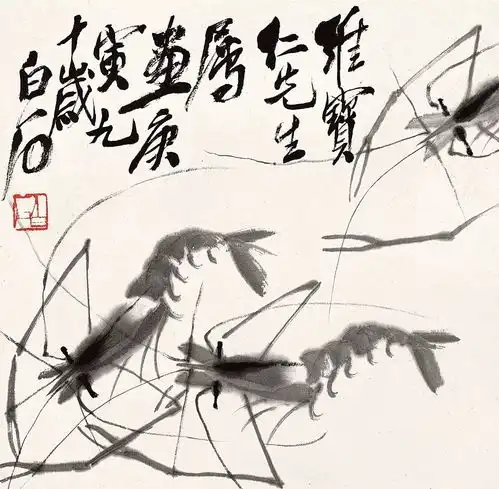 維寶
仁先生
屬
畫庚
寅九
十歲
白石